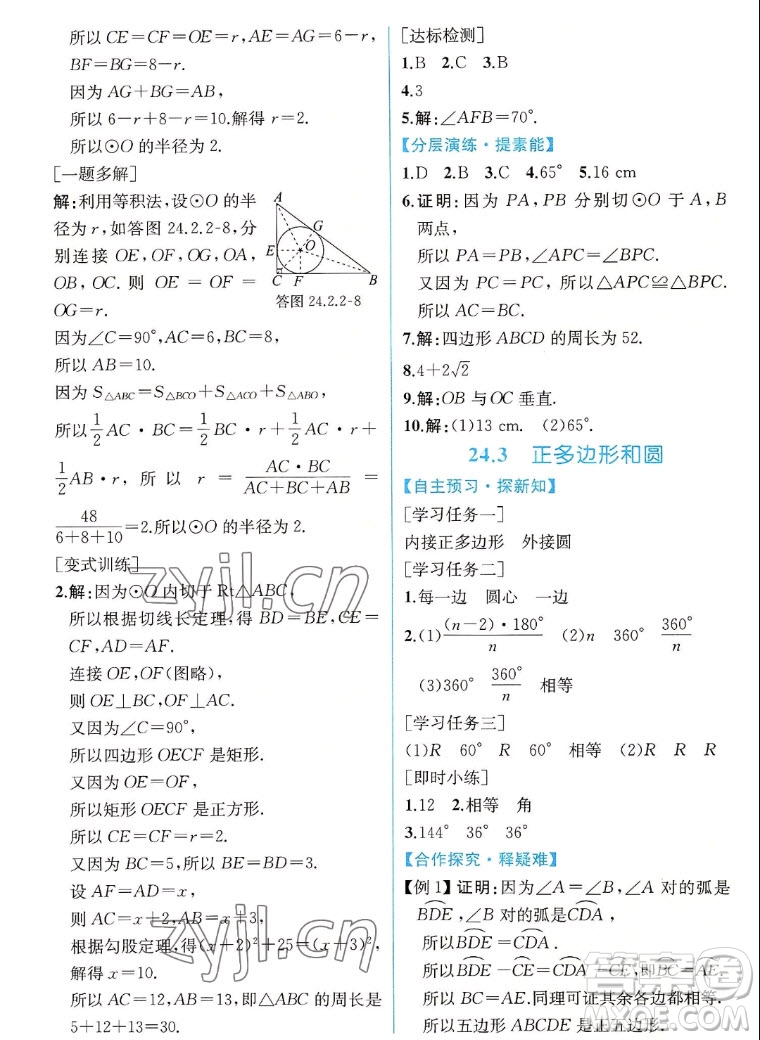 所以 CE=CF=OE=r,AE=AG=6-r,
BF=BG=8-r.
因为 AG+BG=AB,
所以 6-r+8-r=10.解得 r=2.
所以⊙O 的半径为 2.
[一题多解]
解:利用等积法,设⊙O 的半
径为 r,如答图 24.2.2-8,分
别连接 OE,OF,OG,OA,
OB,OC. 则 OE = OF =
OG=r.
A
G
E
O
C
F
B
答图 24.2.2-8
因为∠C=90°,AC=6,BC=8,
所以 AB=10.
因为 S△ABC=S△BCO+S△ACO+S△ABO,
所以 1/2 AC·BC = 1/2 BC·r + 1/2 AC·r +
1/2 AB·r, 所以 r = AC·BC/(AC+BC+AB) =
48/(6+8+10)=2.所以⊙O 的半径为 2.
[变式训练]
2.解:因为⊙O 内切于 Rt△ABC,
所以根据切线长定理,得 BD=BE,CE=
CF,AD=AF.
连接 OE,OF(图略),
则 OE⊥BC,OF⊥AC.
又因为∠C=90°,
所以四边形 OECF 是矩形.
又因为 OE=OF,
所以矩形 OECF 是正方形.
所以 CE=CF=r=2.
又因为 BC=5,所以 BE=BD=3.
设 AF=AD=x,
则 AC=x+2,AB=x+3,
根据勾股定理,得(x+2)²+25=(x+3)²,
解得 x=10.
所以 AC=12,AB=13,即△ABC 的周长是
5+12+13=30.
[达标检测]
1.B 2.C 3.B
4.3
5.解:∠AFB=70°.
【分层演练·提素能】
1.D 2.B 3.C 4.65° 5.16 cm
6.证明:因为 PA,PB 分别切⊙O 于 A,B
两点,
所以 PA=PB,∠APC=∠BPC.
又因为 PC=PC,所以△APC≌△BPC.
所以 AC=BC.
7.解:四边形 ABCD 的周长为 52.
8.4+2√2
9.解:OB 与 OC 垂直.
10.解:(1)13 cm. (2)65°.
24.3 正多边形和圆
【自主预习·探新知】
[学习任务一]
内接正多边形 外接圆
[学习任务二]
1.每一边 圆心 一边
2.(1)(n-2)·180°/n (2)n 360° 360°/n
(3)360° 360°/n 相等
[学习任务三]
(1)R 60° R 60° 相等 (2)R R R
[即时小练]
1.12 2.相等 角
3.144° 36° 36°
【合作探究·释疑难】
【例 1】证明:因为∠A=∠B,∠A 对的弧是
BDE,∠B 对的弧是CDA,
所以BDE=CDA.
所以BDE-CE=CDA-CE,即BC=AE.
所以 BC=AE.同理可证其余各边都相等.
所以五边形 ABCDE 是正五边形.
zyjl.cn
zyjl.cn
答案圈